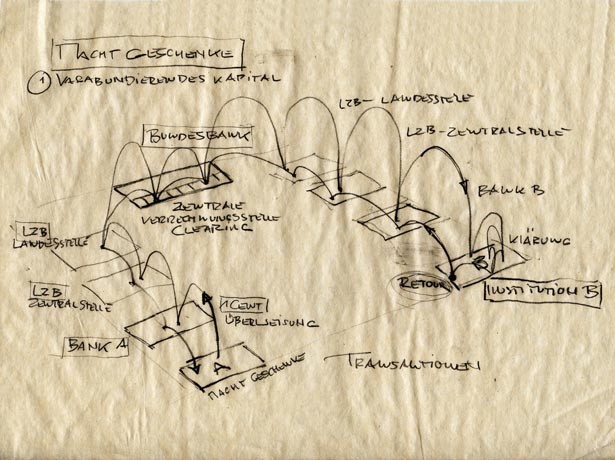 MACHT GESCHENKE
1 VAGABUNDIERENDES KAPITAL
LZB-LANDESSTELLE
LZB-ZENTRALSTELLE
BUNDESBANK
ZENTRALE
VERRECHNUNGSSTELLE
CLEARING
BANK B
KLÄRUNG
B
RETOUR
INSTITUTION B
LZB
LANDESSTELLE
LZB
ZENTRALSTELLE
1 CENT
ÜBERWEISUNG
BANK A
A
MACHT GESCHENKE
TRANSAKTIONEN